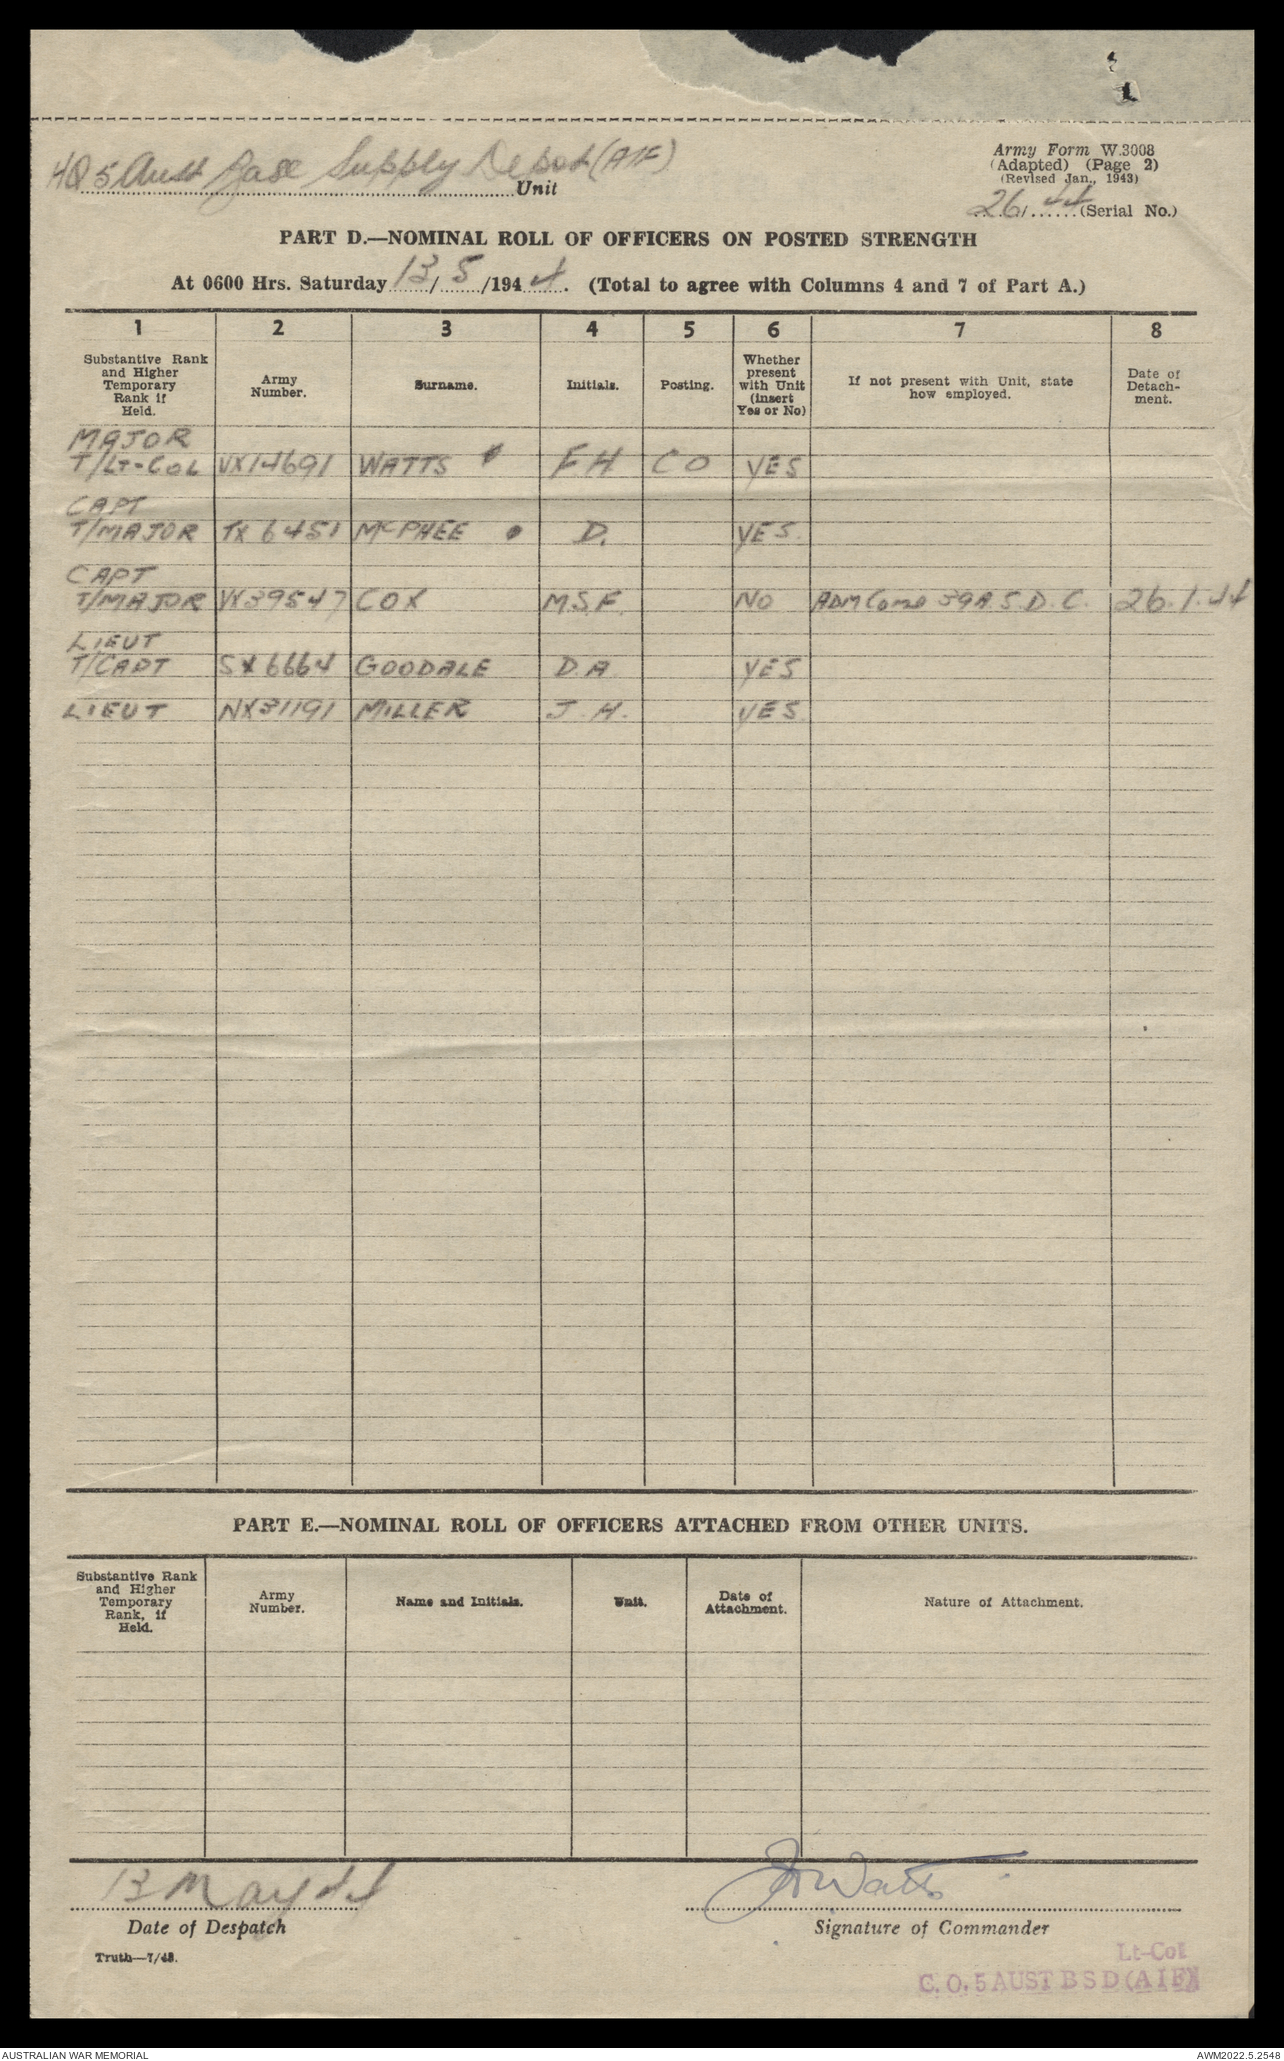 HQ 5 Aust Base Supply Depot (AIF)
Unit
Army Form W.3008
(Adapted) (Page 2)
(Revised Jan., 1943)
26/44 (Serial No.)
PART D.—NOMINAL ROLL OF OFFICERS ON POSTED STRENGTH
At 0600 Hrs. Saturday 13/5/1944. (Total to agree with Columns 4 and 7 of Part A.)
1 2 3 4 5 6 7 8
Substantive Rank and Higher Temporary Rank if Held. Army Number. Surname. Initials. Posting. Whether present with Unit (insert Yes or No) If not present with Unit, state how employed. Date of Detachment.
MAJOR
T/LT-COL VX14691 WATTS F H C O YES
CAPT
T/MAJOR TX 6451 McPHEE D. YES.
CAPT
T/MAJOR VX39547 COX M.S.F. NO ADM Comd 39 A.S.D.C. 26.1.44
LIEUT
T/CAPT SX6664 GOODALE D.A YES
LIEUT NX31191 MILLER J.H. YES
PART E.—NOMINAL ROLL OF OFFICERS ATTACHED FROM OTHER UNITS.
Substantive Rank and Higher Temporary Rank, if Held. Army Number. Name and Initials. Unit. Date of Attachment. Nature of Attachment.
13 May 44
Date of Despatch
Watts
Signature of Commander
Truth—7/43.
Lt-Col
C.O. 5 AUST B S D (A I F)
AUSTRALIAN WAR MEMORIAL
AWM2022.5.2548